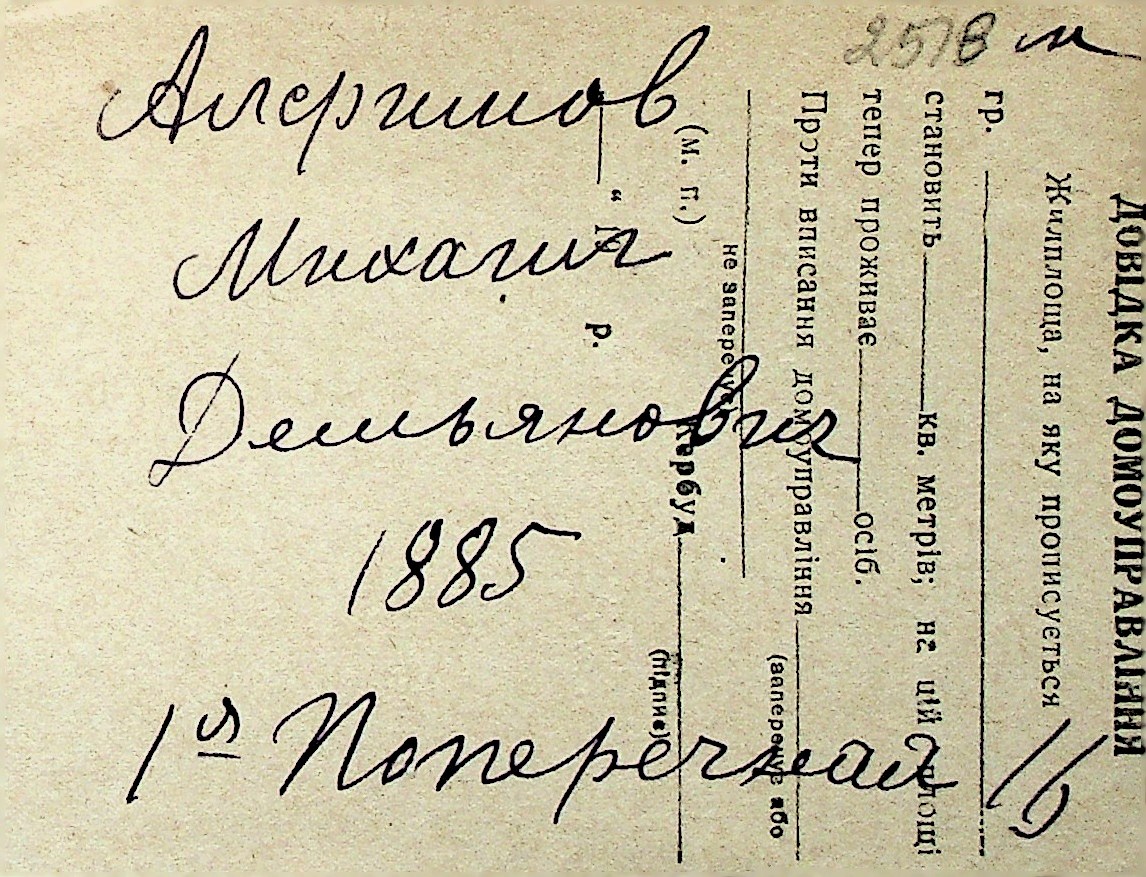 2578 м
Алфимов
Михаил
Демьянович
1885
1я Поперечная
ДОВІДКА ДОМОУПРАВЛІННЯ
Жилплоща, на яку прописується
гр.
становить кв. метрів; на цій площі
тепер проживає осіб.
Проти вписання домоуправління
(заперечує або
не заперечує)
(м. п.) Кербуд
(підпис)
р.